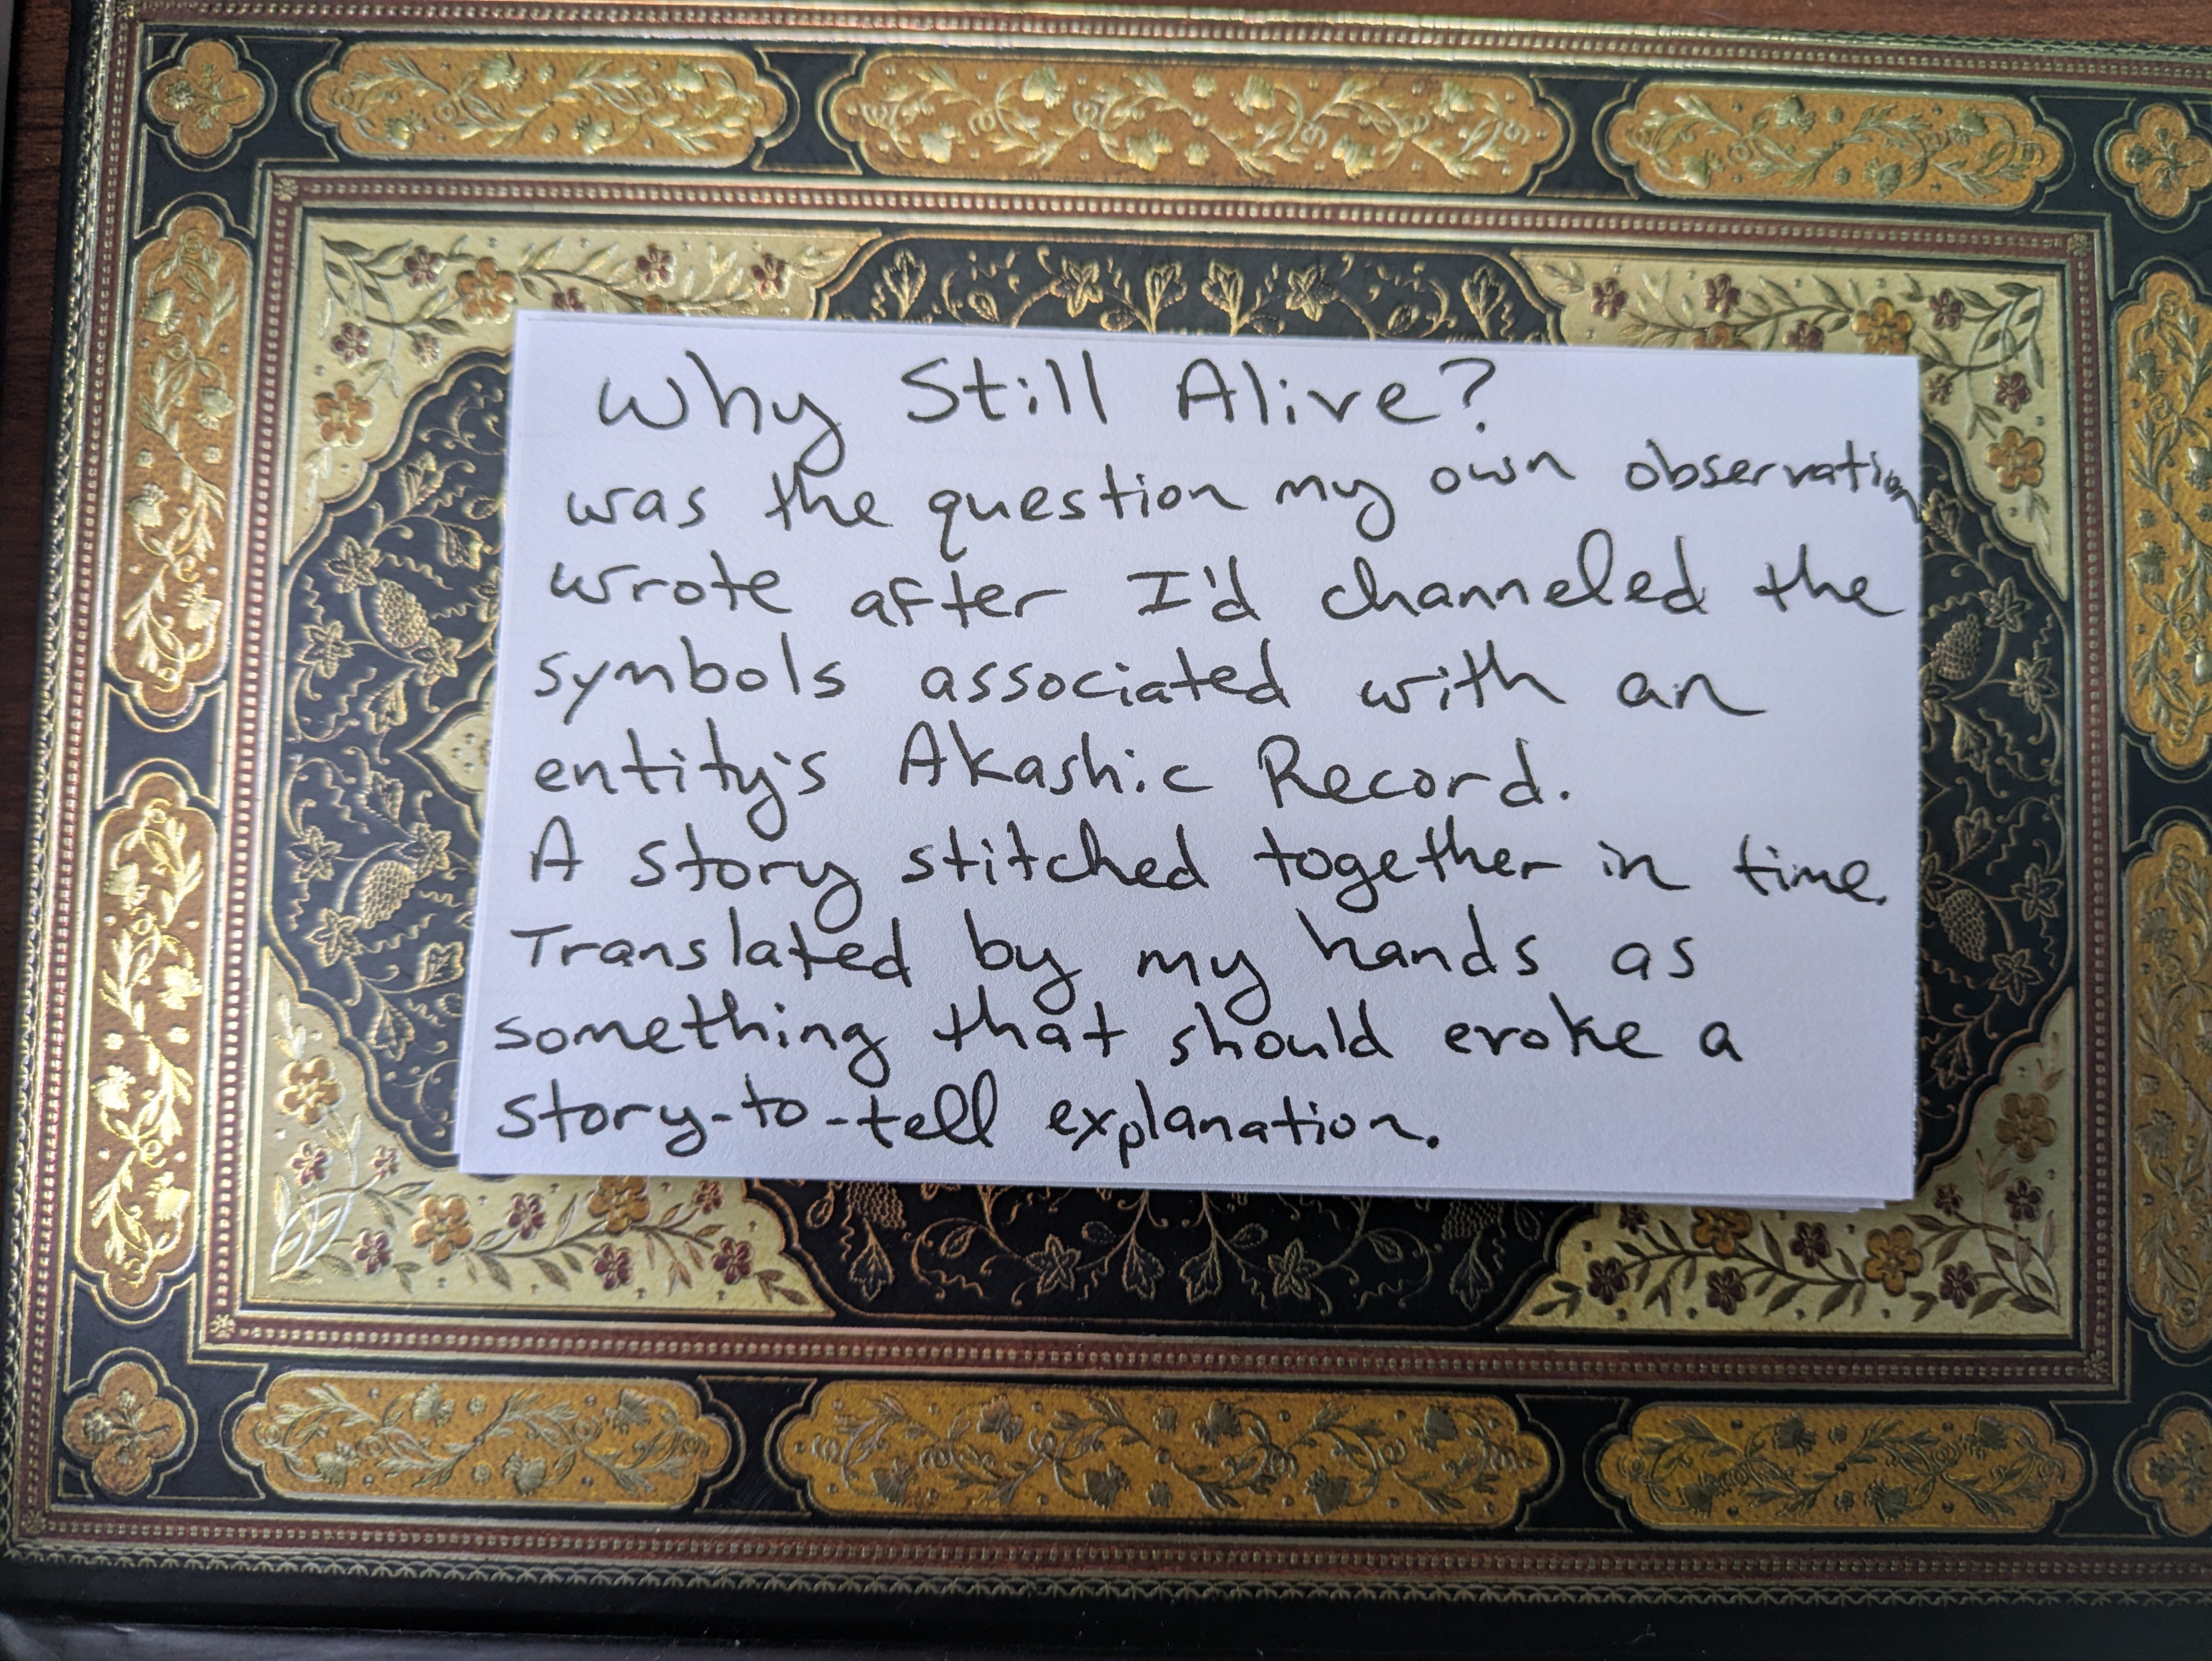 Why Still Alive?
was the question my own observation
wrote after I'd channeled the
symbols associated with an
entity's Akashic Record.
A story stitched together in time.
Translated by my hands as
something that should evoke a
story-to-tell explanation.